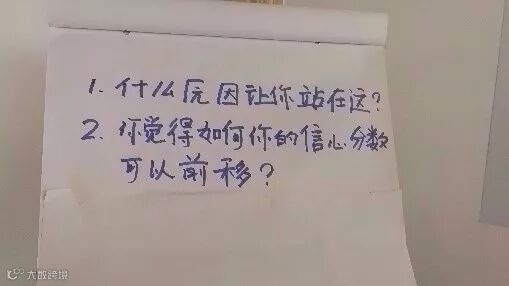 1. 什么原因让你站在这?
2. 你觉得如何你的信心分数
可以前移?
大数跨境